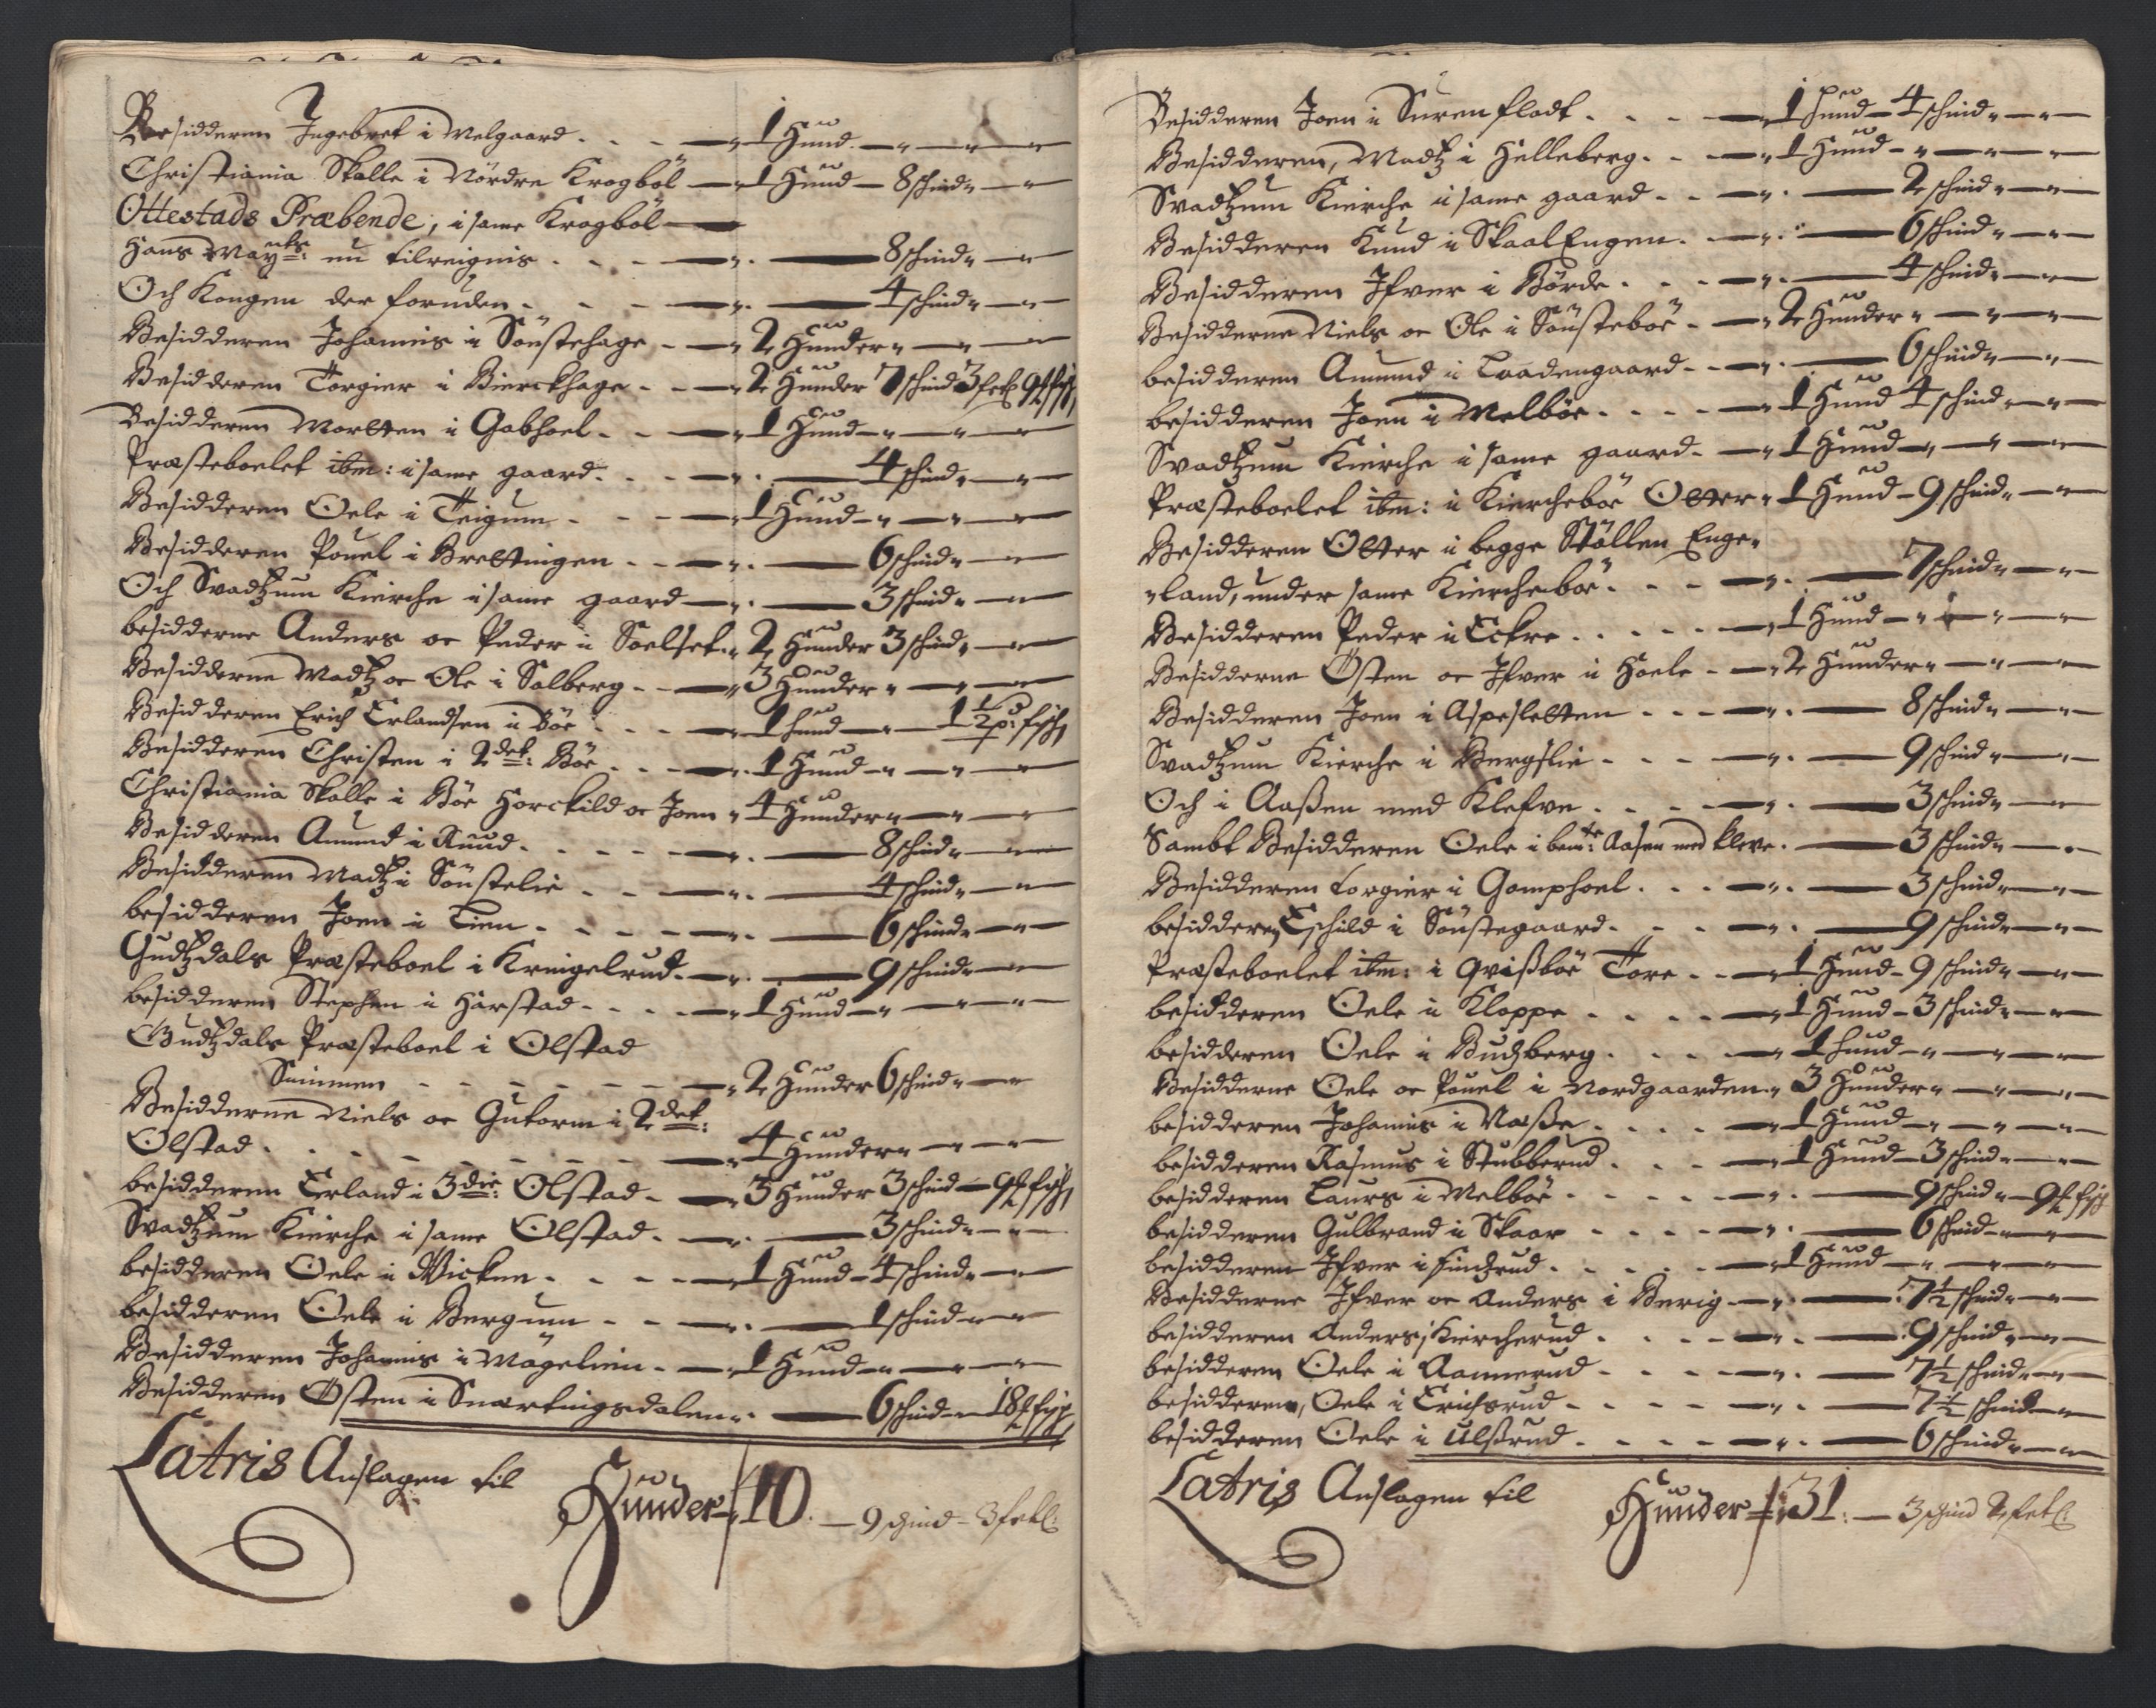 Besidderen Ingebret i Melgaard - - - 1 Hund
Christiania Skolle i Nördre Krogböl - 1 Hund - 8 schind
Ottestads Præbende, i same Krogböl
Hans Mayts: nu tilreignis - - - 8 schind
Och Kongen der foruden - - - 4 schind
Besidderen Johannis i Sönstehage - - 2 Hunder
Besidderen Torgier i Bierckhage - - 2 Hunder 7 schind 3 fetl
Besidderen Mortten i Gabhoel - - 1 Hund
Præsteboelet ibm: i same gaard - - 4 schind
Besidderen Oele i Teigum - - - 1 Hund
Besidderen Pouel i Brettingen - - 6 schind
Och Svadtzum Kierche i same gaard - 3 schind
besidderne Anders oc Peder i Soelset 2 Hunder 3 schind
Besidderne Madtz oc Ole i Solberg - - 3 Hunder
Besidderen Erich Erlandsen i Böe - - - 1 hund - 1½ p: fisch
Besidderen Christen i 2det: Böe - - - 1 Hund
Christiania Skolle i Böe Horckild oc Joen 4 Hunder
Besidderen Amund i Ruud - - - - 8 schind
Besidderen Madtz i Sönstelie - - - 4 schind
besidderen Joen i Lien - - - - 6 schind
Gudtzdals Præsteboel i Kringelrud - 9 schind
besidderen Stephen i Harstad - - - 1 Hund
Gudtzdals Præsteboel i Olstad
Simmen - - - - - - 2 Hunder 6 schind
Besidderne Niels oc Gutorm i 2det:
Olstad - - - - - - 4 Hunder
besidderen Erland i 3die: Olstad - 3 Hunder 3 schind
Svadtzum Kierche i same Olstad - 3 schind
besidderen Oele i Wicken - - - 1 Hund - 4 schind
besidderen Oele i Bergum - - - 1 schind
Besidderen Johannis i Mögelien - 1 Hund
Besidderen Östen i Snærtingsdalen - 6 schind
Latris Anslagen til Hunder 40 - 9 schind - 3 fetl:
Besidderen Joen i Surenflodt - - - 1 hund - 4 schind
Besidderen, Madtz i Helleberg - - 1 Hund
Svadtzum Kierche i same gaard - - 2 schind
Besidderen Knud i SkaalEngen - 6 schind
Besidderen Ifver i Börde - - - 4 schind
Besidderne Niels oc Ole i Sönsteböe - 2 Hunder
besidderen Amund i Laadengaard - - 6 schind
besidderen Joen i Melböe - - - 1 Hund 4 schind
Svadtzum Kierche i same gaard - 1 Hund
Præsteboelet ibm: i Kiercheböe Otter 1 Hund - 9 schind
Besidderen Otter i begge Stöllen Enge
land, under same Kiercheböe - - - 7 schind
Besidderen Peder i Eckre - - - - 1 Hund
Besidderne Östen oc Ifver i Hoele - 2 Hunder
Besidderen Joen i Aspesletten - - - 8 schind
Svadtzum Kierche i Bergslie - - - 9 schind
Och i Aaßen med Klefve - - - 3 schind
Sambt Besidderen Oele i bemte: Aasen med Kleve - 3 schind
Besidderen Torgier i Gomphoel - - - 3 schind
besidderen Eschild i Sönstegaard - - - 9 schind
Præsteboelet ibm: i Qvißböe Tore - - 1 Hund - 9 schind
besidderen Oele i Kloppe - - - - 1 Hund - 3 schind
besidderen Oele i Budzberg - - - 1 hund
Besidderne Oele oc Pouel i Nordgaarden 3 Hunder
besidderen Johannis i Næße - - - 1 Hund
besidderen Rasmus i Stubberud - - - 1 Hund - 3 schind
besidderen Laurs i Melböe - - - - 9 schind
besidderen Gulbrand i Skaar - - - 6 schind
besidderen Ifver i Findzrud - - - - 1 Hund
Besidderne Ifver oc Anders i Berig - 7½ schind
besidderen Anders i Kiercherud - - - 9 schind
besidderen Oele i Aannerud - - - - 7½ schind
besidderen, Oele i Erichsrud - - - - 7½ schind
besidderen Oele i Ulßrud - - - - 6 schind
Latris Anslagen til Hunder 31 - 3 schind 2 fetl: